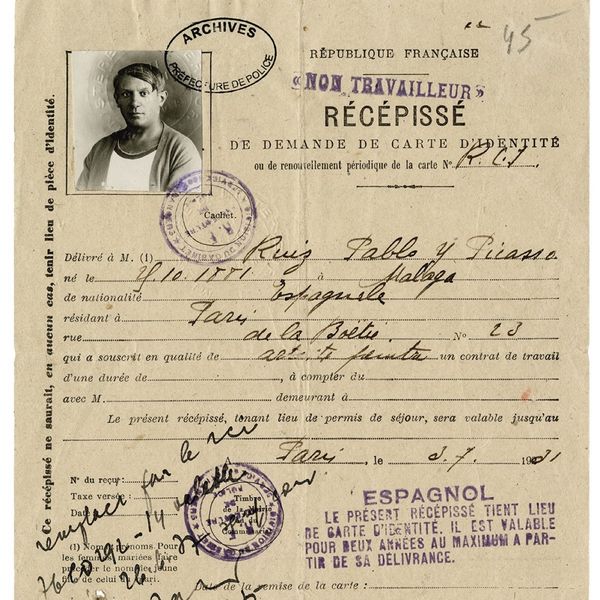 45
ARCHIVES
PRÉFECTURE DE POLICE
RÉPUBLIQUE FRANÇAISE
« NON TRAVAILLEUR »
RÉCÉPISSÉ
DE DEMANDE DE CARTE D'IDENTITÉ
ou de renouvellement périodique de la carte No R.C.I.
Ce récépissé ne saurait, en aucun cas, tenir lieu de pièce d'identité.
Cachet.
Délivré à M. (1) Ruiz Pablo y Picasso
né le 25.10.1881 à Malaga
de nationalité Espagnole
résidant à Paris
rue de la Boëtie No 23
qui a souscrit en qualité de artiste peintre un contrat de travail
d'une durée de , à compter du
avec M. demeurant à
Le présent récépissé, tenant lieu de permis de séjour, sera valable jusqu'au
Paris , le 3.7. 1931
No du reçu:
Taxe versée:
Date
Timbre
(1) Noms, prénoms. Pour
les femmes mariées faire
précéder le nom de jeune
fille de celui du mari.
remplacé par le
ESPAGNOL
LE PRÉSENT RÉCÉPISSÉ TIENT LIEU
DE CARTE D'IDENTITÉ. IL EST VALABLE
POUR DEUX ANNÉES AU MAXIMUM A PAR-
TIR DE SA DÉLIVRANCE.
Date de la remise de la carte :